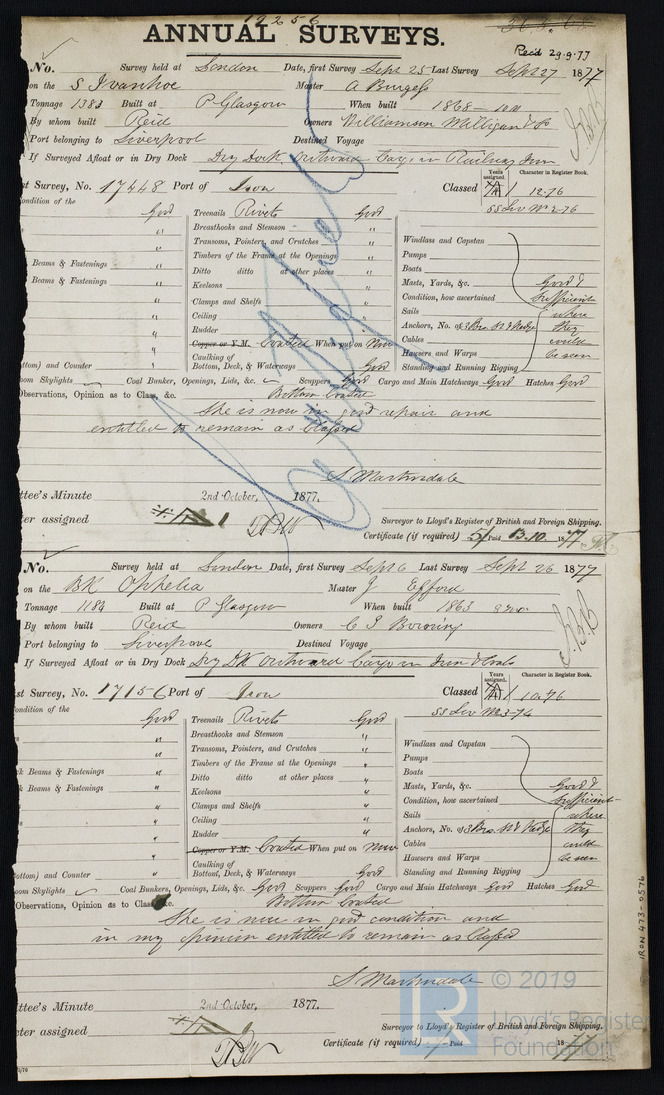 19256
ANNUAL SURVEYS.
Recd 29.9.77
No. Survey held at London Date, first Survey Sept 25 Last Survey Sept 27 1877
on the S Ivanhoe Master A Burgess
Tonnage 1383 Built at P Glasgow When built 1868
By whom built Reid Owners Williamson Milligan & Co
Port belonging to Liverpool Destined Voyage
If Surveyed Afloat or in Dry Dock Dry Dock Outward Cargo Railway Iron
st Survey, No. 17448 Port of Iron Classed Years assigned. Character in Register Book. 12.76
ondition of the SS Liv No 2-76
Good Treenails Rivets Good
" Breasthooks and Stemson "
" Transoms, Pointers, and Crutches " Windlass and Capstan
" Timbers of the Frame at the Openings " Pumps
Beams & Fastenings " Ditto ditto at other places " Boats
Beams & Fastenings " Keelsons " Masts, Yards, &c. Good &
" Clamps and Shelfs " Condition, how ascertained Sufficient
" Ceiling " Sails where
" Rudder " Anchors, No. of 3 Brs. St & Kedge they
" Copper or Y.M. Coated When put on Now Cables could
" Caulking of Hawsers and Warps be seen
ottom) and Counter " Bottom, Deck, & Waterways Good Standing and Running Rigging
oom Skylights Coal Bunker, Openings, Lids, &c. Scuppers Good Cargo and Main Hatchways Good Hatches Good
Observations, Opinion as to Class, &c. Bottom Coated
She is now in good repair and
entitled to remain as Classed
S Martinsdale
ttee's Minute 2nd October, 1877.
er assigned Surveyor to Lloyd's Register of British and Foreign Shipping.
Certificate (if required) 5/ Paid 13.10. 1877
No. Survey held at London Date, first Survey Sept 6 Last Survey Sept 26 1877
on the BK Ophelia Master J Efford
Tonnage 1184 Built at P Glasgow When built 1863
By whom built Reid Owners C T Bowring
Port belonging to Liverpool Destined Voyage
If Surveyed Afloat or in Dry Dock Dry DK Outward Cargo Iron & Coals
st Survey, No. 17156 Port of Iron Classed Years assigned. Character in Register Book. 10.76
ondition of the SS Liv No 3-74
Good Treenails Rivets Good
" Breasthooks and Stemson "
" Transoms, Pointers, and Crutches " Windlass and Capstan
" Timbers of the Frame at the Openings " Pumps
k Beams & Fastenings " Ditto ditto at other places " Boats
k Beams & Fastenings " Keelsons " Masts, Yards, &c. Good &
" Clamps and Shelfs " Condition, how ascertained Sufficient
" Ceiling " Sails where
" Rudder " Anchors, No. of 3 Brs. St & Kedge they
" Copper or Y.M. Coated When put on Now Cables could
" Caulking of Hawsers and Warps be seen
ottom) and Counter " Bottom, Deck, & Waterways Good Standing and Running Rigging
oom Skylights Coal Bunkers, Openings, Lids, &c. Good Scuppers Good Cargo and Main Hatchways Good Hatches Good
Observations, Opinion as to Class, &c. Bottom Coated
She is now in good condition and
in my opinion entitled to remain as Classed
S Martinsdale
ttee's Minute 2nd October, 1877.
cter assigned Surveyor to Lloyd's Register of British and Foreign Shipping.
Certificate (if required) Paid 1877
IRON 473-0576
LR © 2019
Lloyd's Register
Foundation